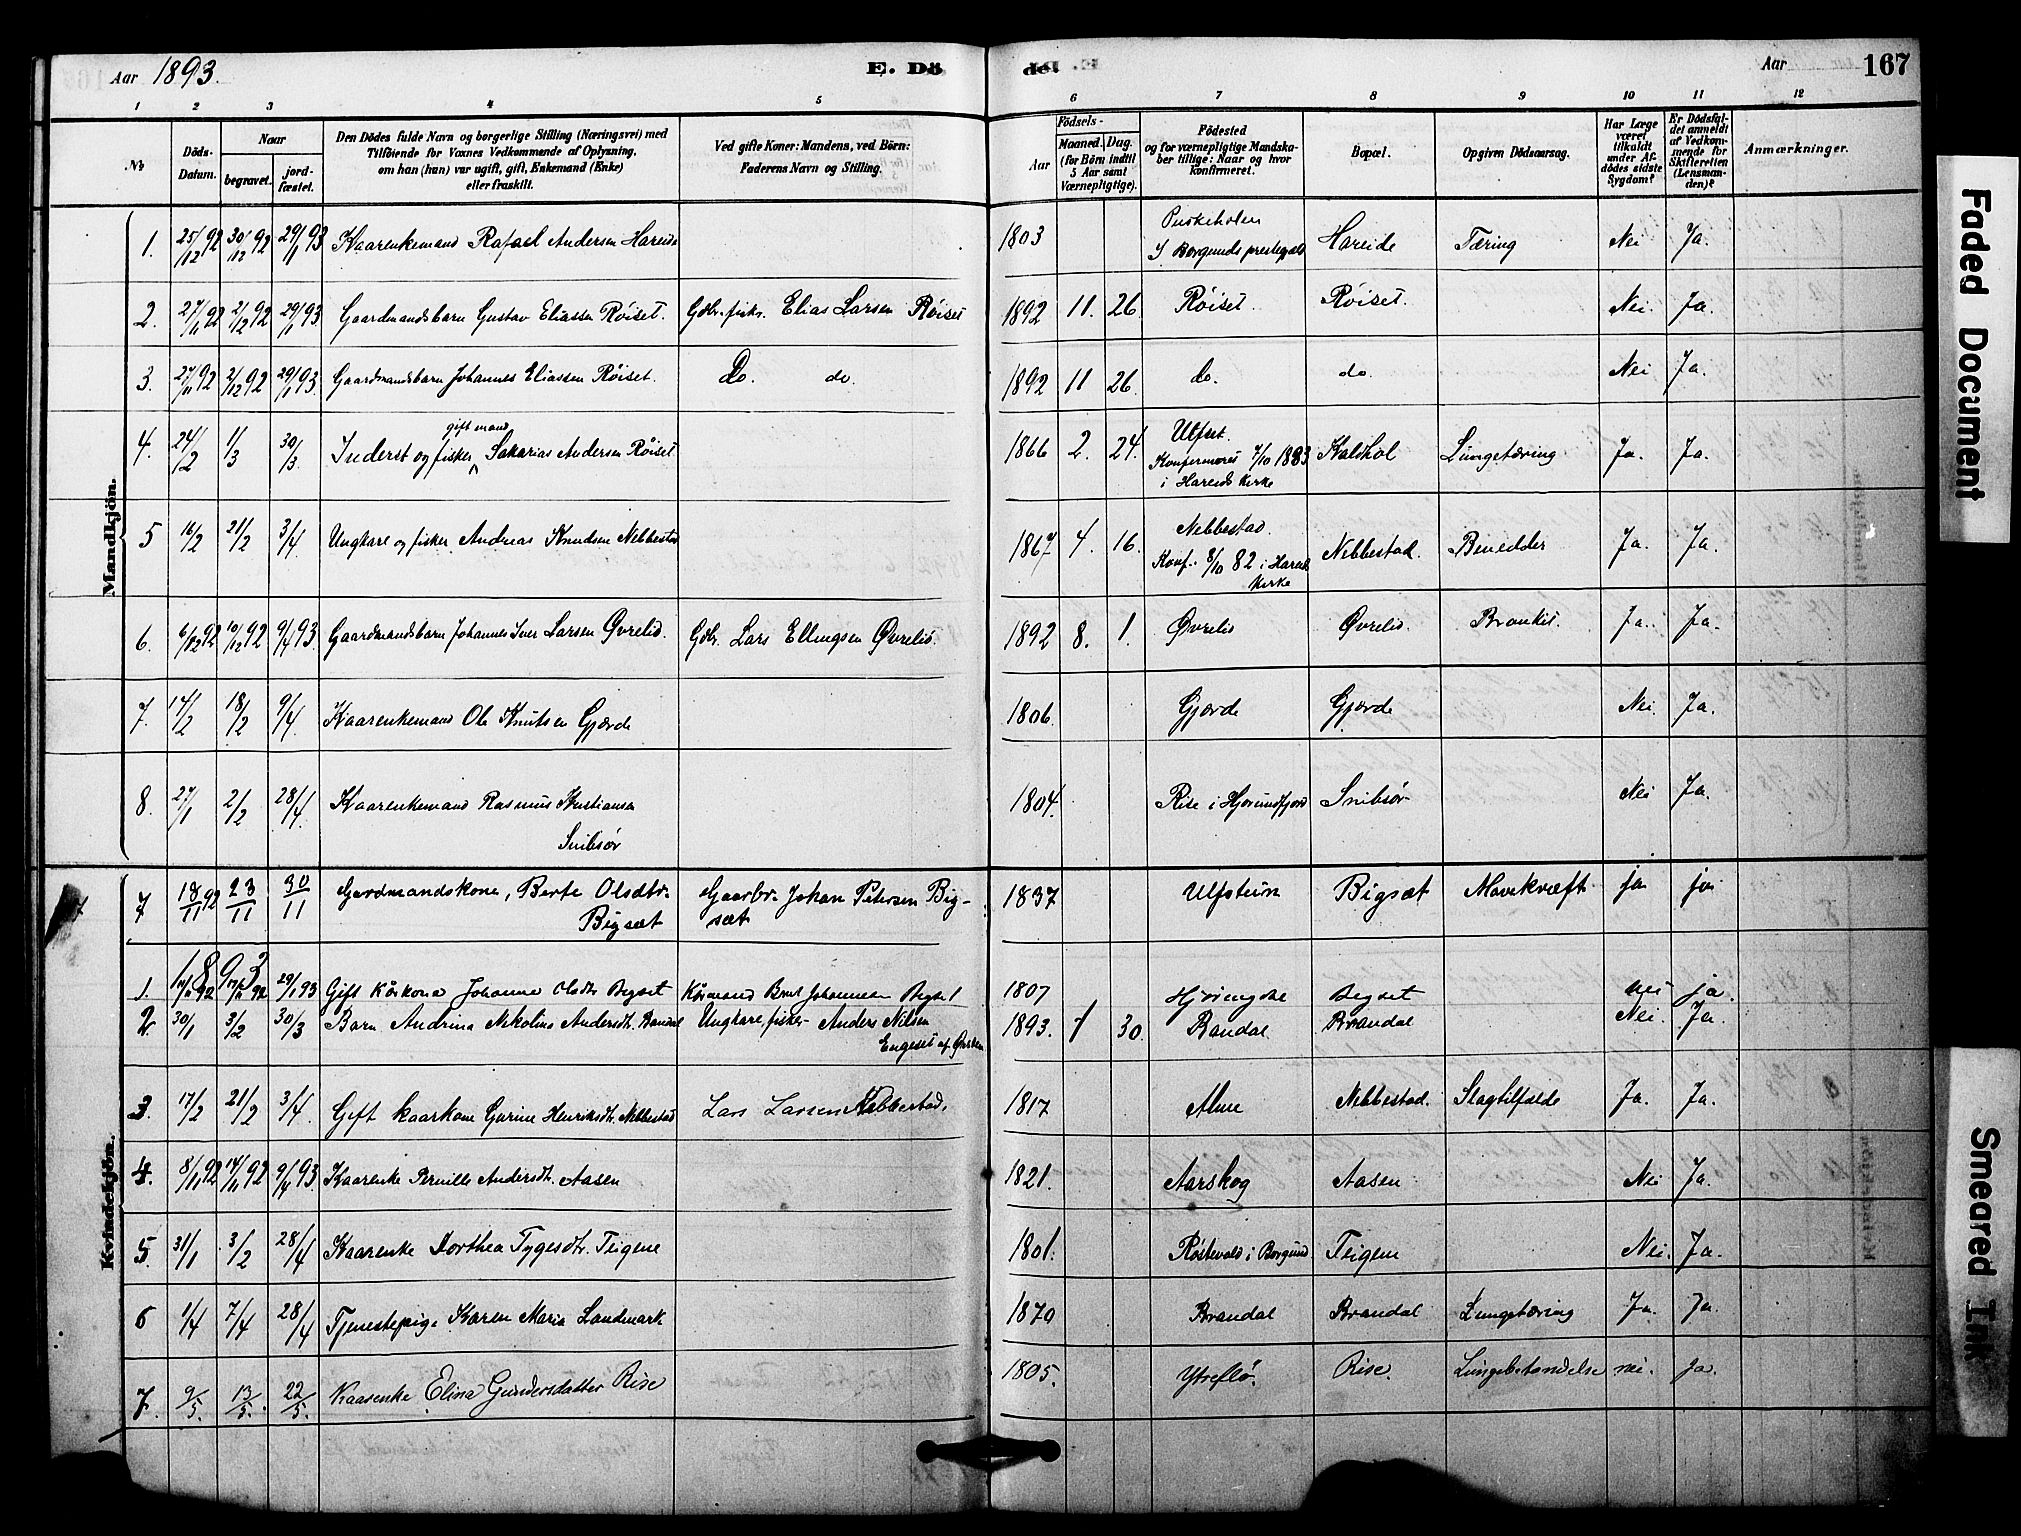 Aar 1893.
E. Dö
de.
Aar
167
1 2 3 4 5 6 7 8 9 10 11 12
№
Döds-Datum.
Naar
begravet.
jord-fæstet.
Den Dödes fulde Navn og borgerlige Stilling (Næringsvei) med
Tilföiende for Voxnes Vedkommende af Oplysning,
om han (hun) var ugift, gift, Enkemand (Enke)
eller fraskilt.
Ved gifte Koner: Mandens, ved Börn:
Faderens Navn og Stilling.
Födsels-
Aar
Maaned. Dag.
(for Börn indtil
5 Aar samt
Værnepligtige).
Födested
og for værnepligtige Mandska-
ber tillige: Naar og hvor
konfirmeret.
Bopæl.
Opgiven Dödsaarsag.
Har Læge
været
tilkaldt
under Af-
dödes sidste
Sygdom?
Er Dödsfal-
det anmeldt
af Vedkom-
mende for
Skifteretten
(Lensman-
den)?
Anmærkninger.
Mandkjön.
1. 25/12 92 30/12 92 29/1 93 Kaarenkemand Rafael Andersen Hareide 1803 i Borgunds prestegjeld Hareide Tæring Nei Ja.
2. 27/11 92 2/12 92 29/1 93 Gaardmandsbarn Gustav Eliassen Röiset. Gdbr. fisk. Elias Larsen Röiset 1892 11. 26. Röiset. Röiset. Nei. Ja.
3. 27/11 92 2/12 92 29/1 93. Gaardmandsbarn Johannes Eliassen Röiset. Do. do. 1892 11 26. do. do. Nei Ja.
4. 24/2 1/3 30/3. Inderst og fisker gift mand Sakarias Andersen Röiset 1866 2. 24. Ulfset. Konfirmeret 7/10 1883 i Hareids Kirke Kaldhol Lungetæring Ja. Ja.
5 16/2 21/2 3/4 Ungkare og fisker Andreas Knudsen Nebbestad 1867 4. 16. Nebbestad. Konf. 8/10 82 i Hareids Kirke Nebbestad. Benedder Ja. Ja.
6. 6/12 92 10/12 92 9/4 93. Gaardmandsbarn Johannes Iver Larsen Øvrelid. Gdbr. Lars Ellingsen Øvrelid. 1892 8. 1. Øvrelid Øvrelid. Bronkit. Ja. Ja.
7. 14/2 18/2 9/4. Kaarenkemand Ole Knutsen Gjærde 1806. Gjærde Gjærde Nei. Ja.
8. 27/1 2/2 28/4. Kaarenkemand Rasmus Kristiansen
Snibsør 1804. Rise i Hjørundfjord Snibsør Nei Ja.
Kvindekjön.
7 18/11 92 23/11 30/11 Gardmandskone, Berte Olsdtr. Bigsæt Gaarbr. Johan Petersen Bigsæt 1837 Ulfstein Bigsæt Mavekræft ja ja
1893
1. 92 92 29/1 93 Gift Kårkona Johanna Olsdtr Bigset Kårmand Johannesen Bigset 1807 Bigset nei ja.
2. 30/1 3/2 30/3 Barn Andrina Nikolina Andersdt. Brandal Ungkare, fisker Anders Nilsen
Engeset af Ørsten 1893. 1 30. Brandal Brandal Nei. Ja.
3. 17/2 21/2 3/4 Gift kaarkone Gurine Henriksdt. Nebbestad Lars Larsen Nebbestad. 1817 Alme Nebbestad. Slagtilfælde Ja. Ja.
4. 8/11 92 14/11 92 9/4 93. Kaarenke Pernille Andersdt. Aasen 1821. Aarskog Aasen Nei Ja.
5. 31/1 3/2 28/4 Kaarenke Dorthea Tygesdtr. Teigene 1801. i Borgund Teigene Nei. Ja.
6 1/4 7/4 28/4 Tjenestepige Karen Maria Landmark 1870 Brandal Brandal Lungetæring Ja. Ja.
7. 9/5. 13/5. 22/5. Kaarenke Elina Gundersdatter Rise 1805. Ytreflø. Rise. Lungebetændelse nei. ja.
Faded Document
Smeared Ink